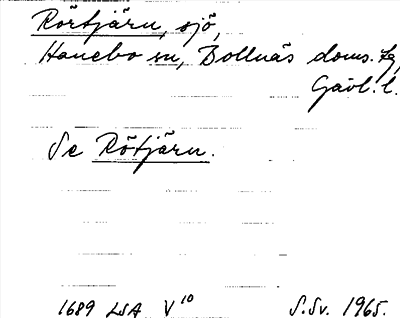 Rörtjärn, sjö,
Hanebo sn, Bollnäs doms. tg,
Gävl. l.
Se Rötjärn.
1689 LSA V 10 S.Sv. 1965.